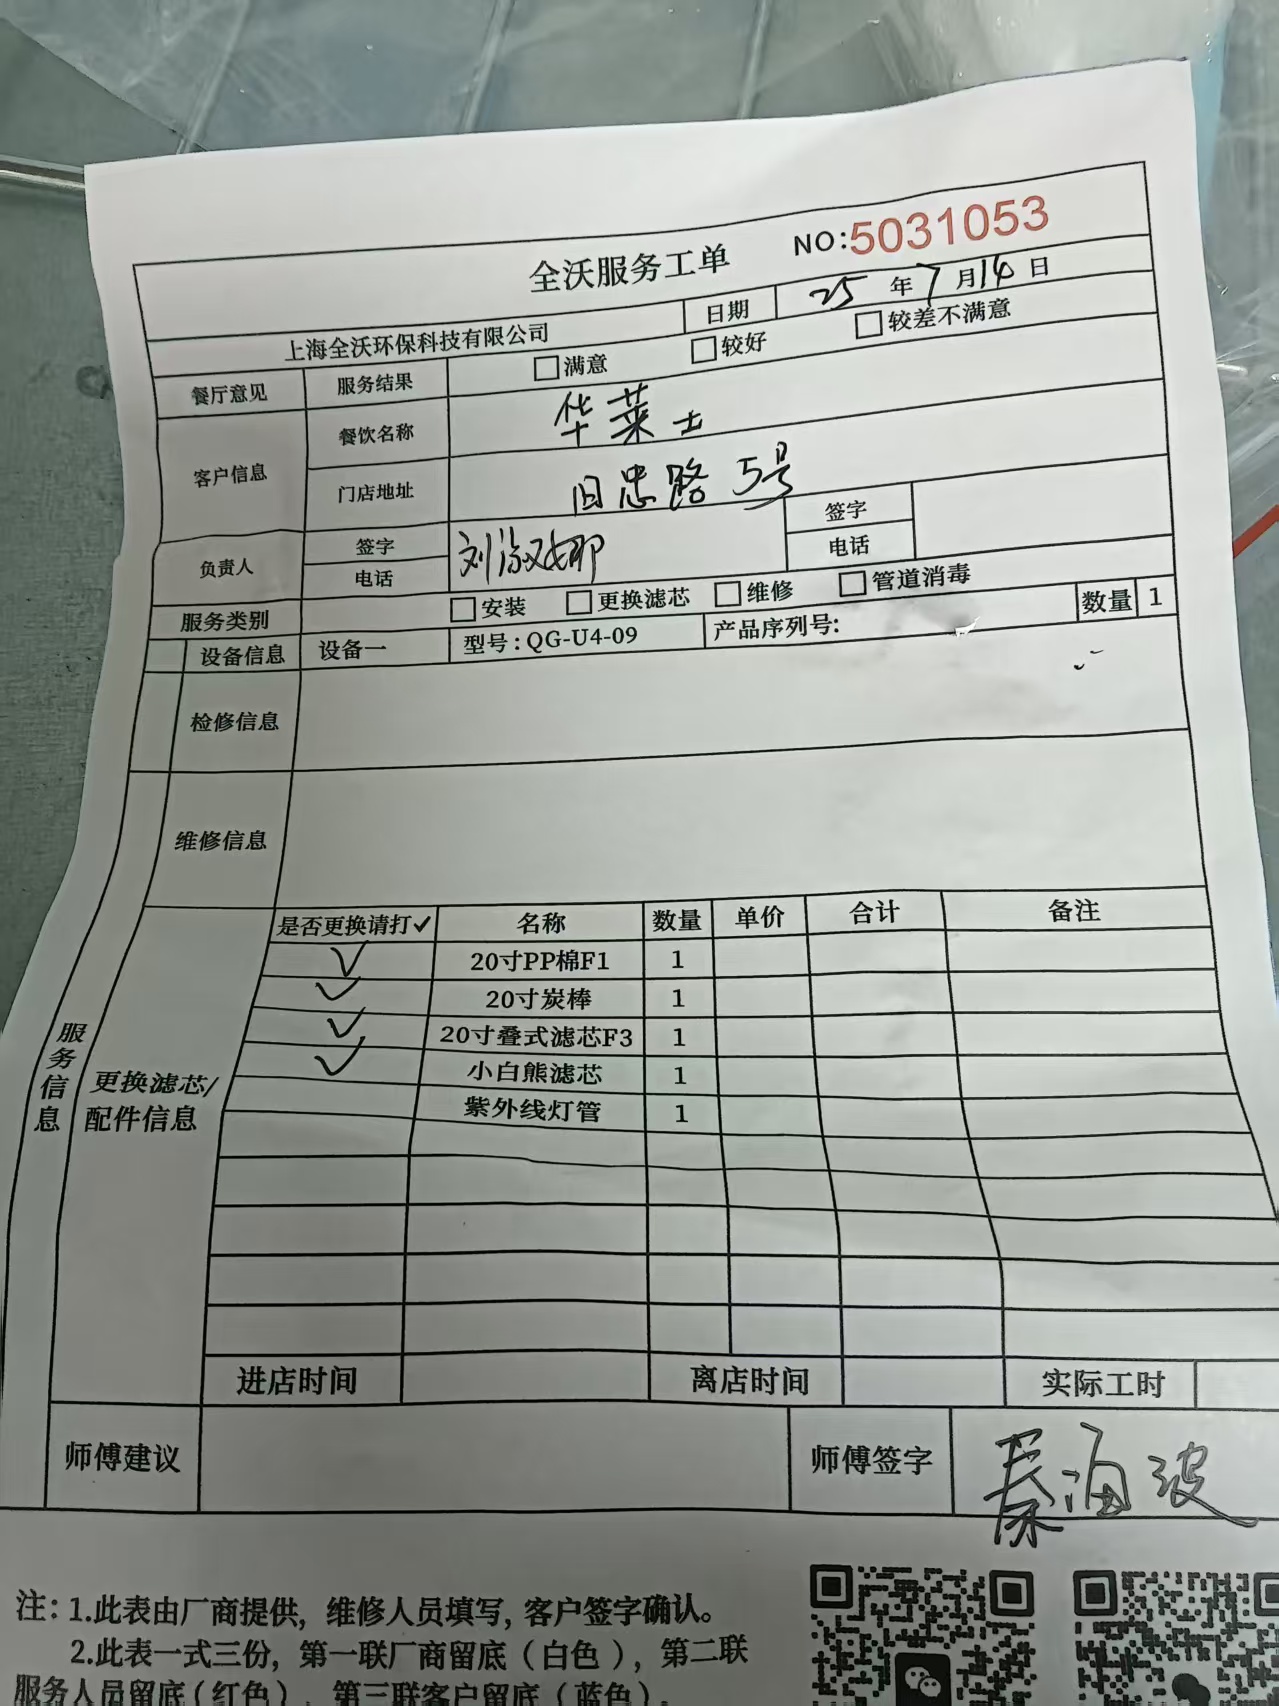 全沃服务工单 NO:5031053
上海全沃环保科技有限公司 日期 25年7月14日
餐厅意见 服务结果 □满意 □较好 □较差不满意
客户信息 餐饮名称 华莱士
门店地址 旧忠路5号
负责人 签字 刘淑娜 签字
电话 电话
服务类别 □安装 □更换滤芯 □维修 □管道消毒
设备信息 设备一 型号:QG-U4-09 产品序列号: 数量 1
检修信息
维修信息
服务信息
更换滤芯/配件信息
是否更换请打✓ 名称 数量 单价 合计 备注
✓ 20寸PP棉F1 1
✓ 20寸炭棒 1
✓ 20寸叠式滤芯F3 1
✓ 小白熊滤芯 1
紫外线灯管 1
进店时间 离店时间 实际工时
师傅建议 师傅签字 秦海波
注:1.此表由厂商提供,维修人员填写,客户签字确认。
2.此表一式三份,第一联厂商留底(白色),第二联
服务人员留底(红色),第三联客户留底(蓝色)。